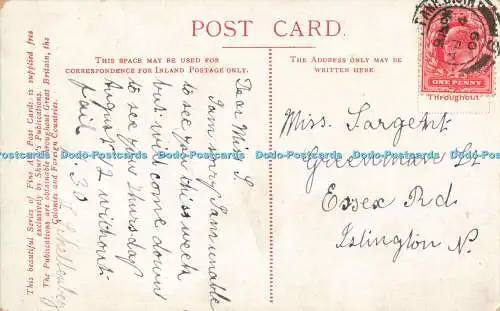 POST CARD.
THIS SPACE MAY BE USED FOR
CORRESPONDENCE FOR INLAND POSTAGE ONLY.
THE ADDRESS ONLY MAY BE
WRITTEN HERE.
This beautiful Series of Fine Art Post Cards is supplied free
exclusively by Shurey's Publications.
The Publications are obtainable throughout Great Britain, the
Colonies and Foreign Countries.
Dear Miss S
I am sorry I am unable
to see you this week
but will come down
to see you Thursday
August 12 without
fail
ONE PENNY
Throughout
Miss Sargent
Greenman St
Essex Rd
Islington N.
Data-Postcards Data-Postcards Data-Postcards Data-Postcards Data-Postcards Data-Postcards